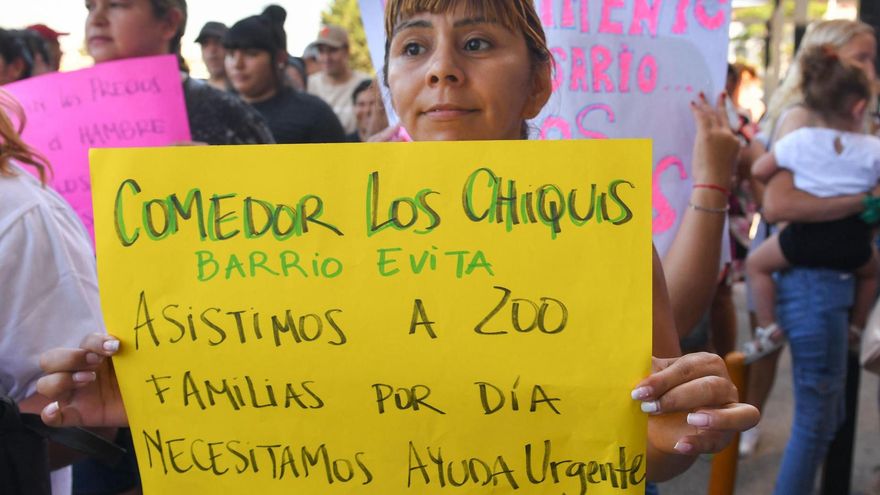 Comedor Los Chiquis
Barrio Evita
Asistimos a 200
familias por día
Necesitamos Ayuda Urgente
los precios
el hambre
sario...